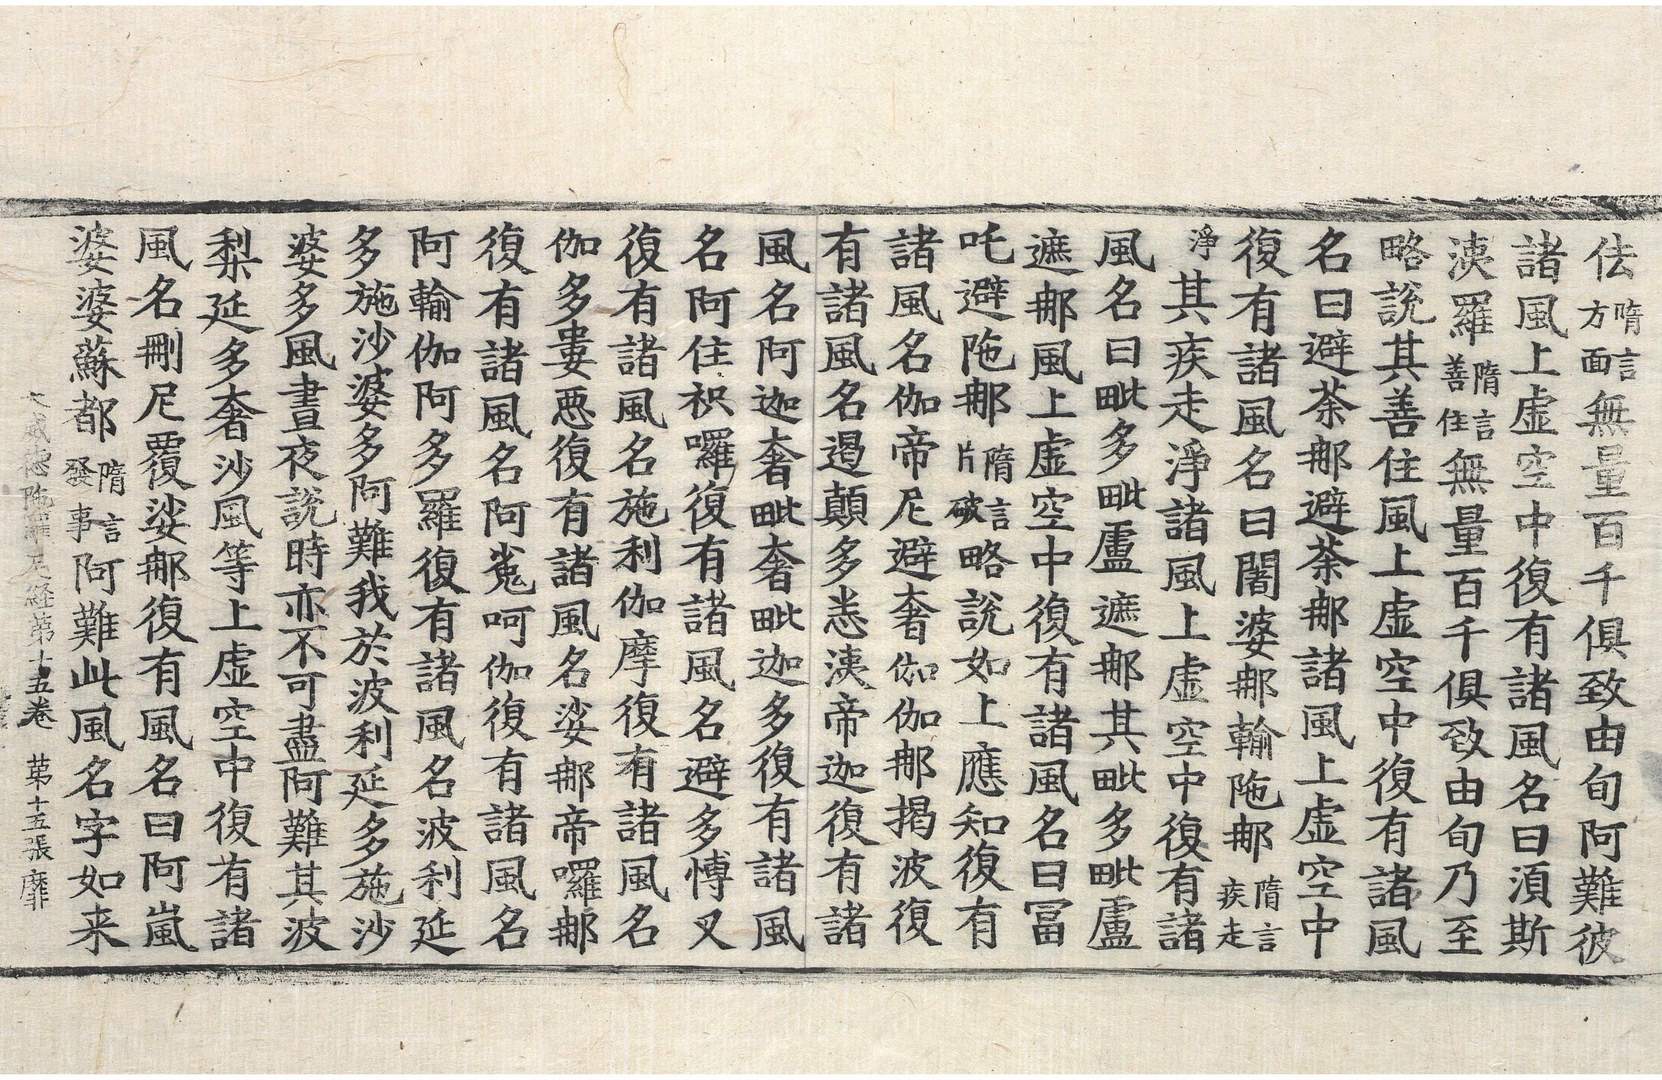 佉隋言方面無量百千俱致由旬阿難彼
諸風上虛空中復有諸風名曰湏斯
渜羅隋言善住無量百千俱致由旬乃至
略說其善住風上虛空中復有諸風
名曰避荼𨚗避荼𨚗諸風上虛空中
復有諸風名曰闍婆𨚗輸陁𨚗隋言疾走
淨其疾走淨諸風上虛空中復有諸
風名曰毗多毗盧遮𨚗其毗多毗盧
遮𨚗風上虛空中復有諸風名曰冨
吒避陁𨚗隋言片破略說如上應知復有
諸風名伽帝尼避奢伽伽𨚗揭波復
有諸風名遏顛多恙渜帝迦復有諸
風名阿迦奢毗奢毗迦多復有諸風
名阿住祑囉復有諸風名避多愽叉
復有諸風名施利伽摩復有諸風名
伽多婁惡復有諸風名娑𨚗帝囉𨚗
復有諸風名阿嵬呵伽復有諸風名
阿輸伽阿多羅復有諸風名波利延
多施沙婆多阿難我於波利延多施沙
婆多風晝夜說時亦不可盡阿難其波
梨延多奢沙風等上虛空中復有諸
風名刪尼覆娑𨚗復有風名曰阿嵐
婆婆蘇都隋言發事阿難此風名字如来
大威德陁羅尼經第十五卷 第十五張 靡